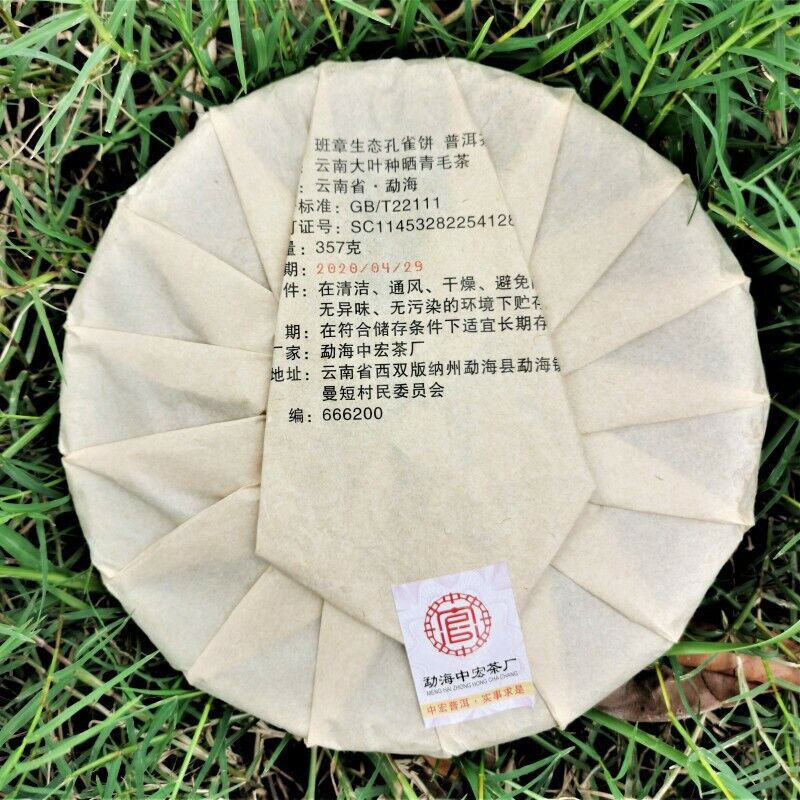 班章生态孔雀饼 普洱
：云南大叶种晒青毛茶
：云南省·勐海
标准：GB/T22111
证号：SC11453282254128
量：357克
期：2020/04/29
件：在清洁、通风、干燥、避免
无异味、无污染的环境下贮存
期：在符合储存条件下适宜长期存
厂家：勐海中宏茶厂
地址：云南省西双版纳州勐海县勐海镇
曼短村民委员会
编：666200
官
勐海中宏茶厂
MENG HAI ZHONG HONG CHA CHANG
中宏普洱·实事求是